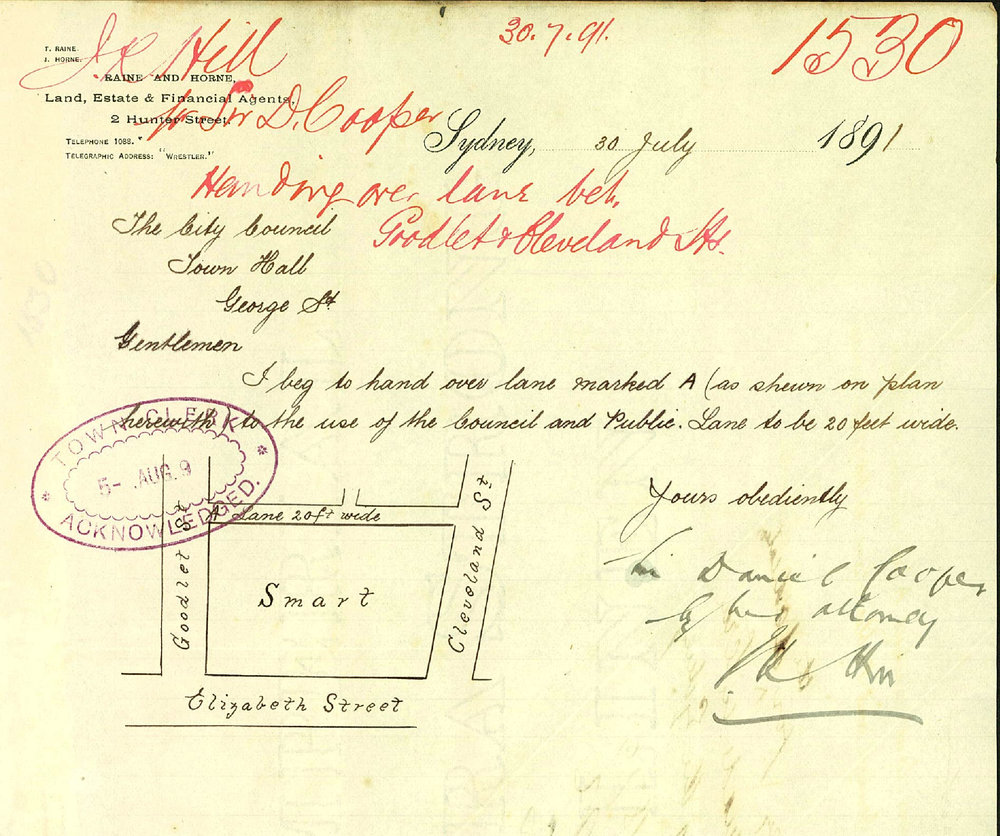 30.7.91.
1530
J.R. Hill
T. RAINE.
J. HORNE.
RAINE AND HORNE,
Land, Estate & Financial Agents,
2 Hunter Street.
TELEPHONE 1088.
TELEGRAPHIC ADDRESS: "WRESTLER."
pr Sir D. Cooper
Sydney, 30 July 1891
Handing over lane bet.
Goodlet & Cleveland Sts.
The City Council
Town Hall
George St.
Gentlemen
I beg to hand over lane marked A (as shewn on plan
herewith) to the use of the Council and Public. Lane to be 20 feet wide.
TOWN CLERK
5- AUG. 9
ACKNOWLEDGED.
Yours obediently
Sir Daniel Cooper
by his attorney
A Lane 20ft wide
Goodlet St
Smart
Cleveland St
Elizabeth Street